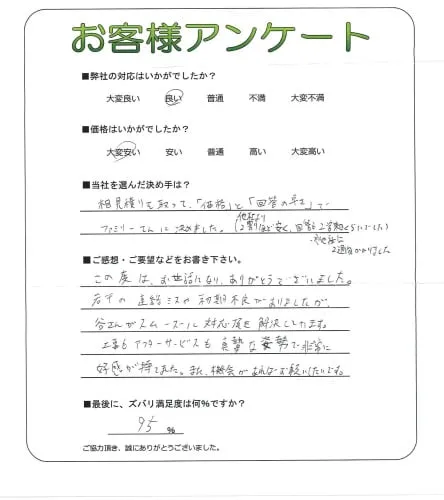 お客様アンケート
■弊社の対応はいかがでしたか?
大変良い 良い 普通 不満 大変不満
■価格はいかがでしたか?
大変安い 安い 普通 高い 大変高い
■当社を選んだ決め手は?
相見積りを取って、「価格」と「回答の早さ」で
ファミリーさんに決めました。(他社より2割ほど安く、回答も2日程くらいでした)
他社は2週間かかりました
■ご感想・ご要望などをお書き下さい。
この度は、お世話になり、ありがとうございました。
若干の連絡ミスや初期不良がありましたが、
谷さんがスムーズに対応頂き解決してます。
工事もアフターサービスも真摯な姿勢で非常に
好感が持てました。また、機会があればお願いしたいです。
■最後に、ズバリ満足度は何%ですか?
95 %
ご協力頂き、誠にありがとうございました。